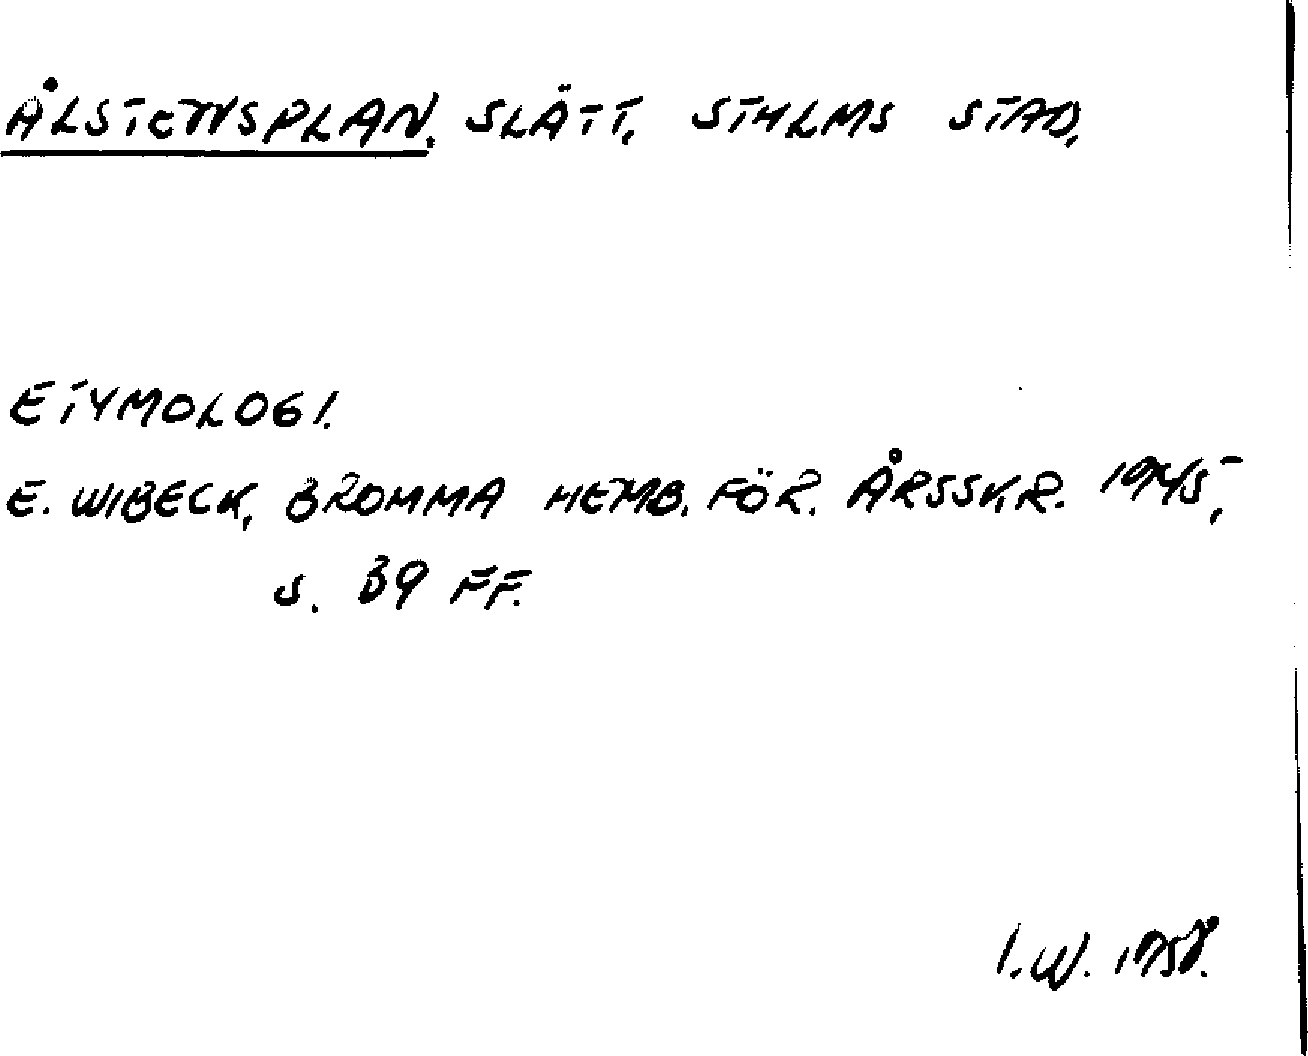 ÅLSTENSPLAN, SLÄTT, STHLMS STAD,
ETYMOLOGI.
E. WIBECK, BROMMA HEMB. FÖR. ÅRSSKR. 1945,
S. 39 FF.
I.W. 1958.